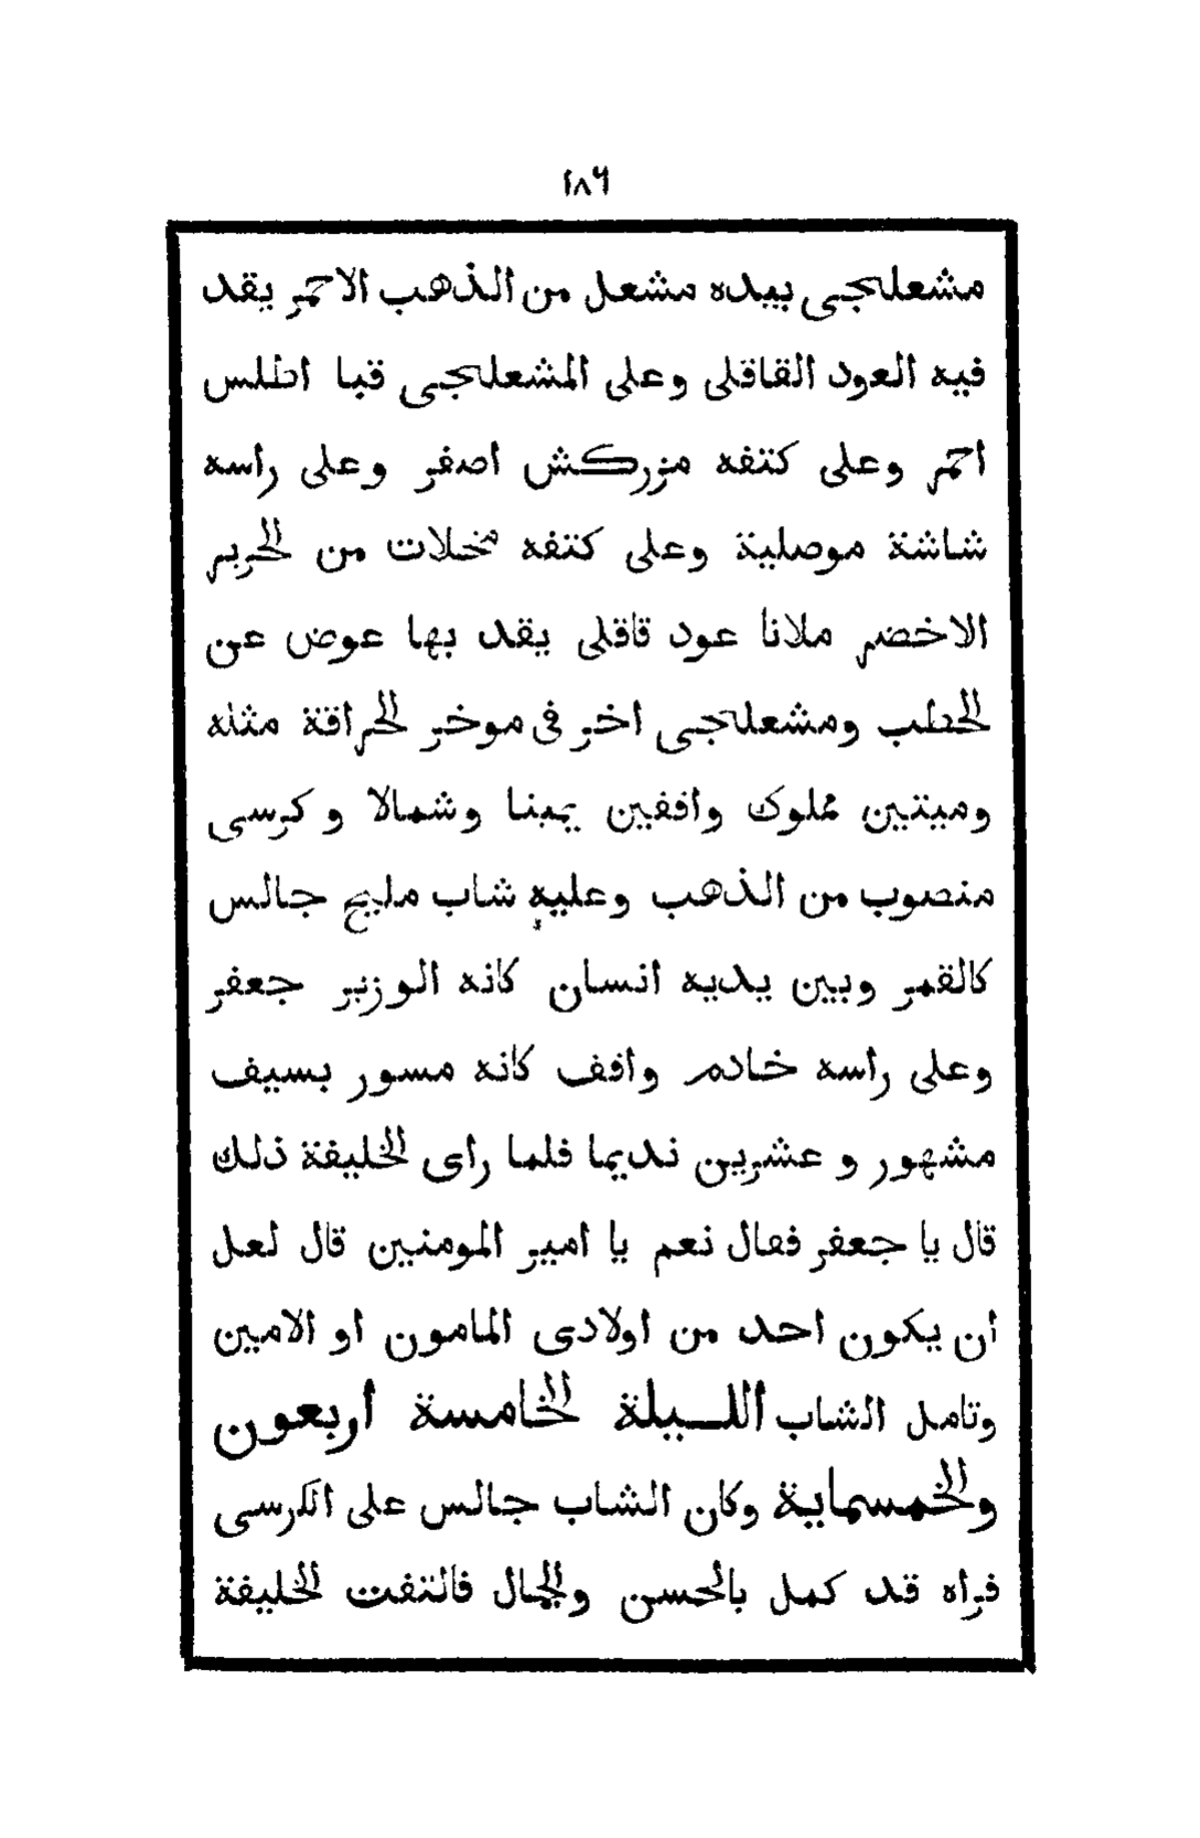 ١٨٦
مشعلجى بيده مشعل من الذهب الاحمر يقد
فيه العود القاقلى وعلى المشعلجى قبا اطلس
احمر وعلى كتفه مزركش اصفر وعلى راسه
شاشة موصلية وعلى كتفه مخلات من الحرير
الاخضر ملانا عود قاقلى يقد بها عوض عن
الحطب ومشعلجى اخر فى موخر الحراقة مثله
وميتين مملوك واقفين يمينا وشمالا وكرسى
منصوب من الذهب وعليه شاب مليح جالس
كالقمر وبين يديه انسان كانه الوزير جعفر
وعلى راسه خادم واقف كانه مسور بسيف
مشهور و عشرين نديما فلما راى الخليفة ذلك
قال يا جعفر فقال نعم يا امير المومنين قال لعل
ان يكون احد من اولادى المامون او الامين
وتامل الشاب الليلة الخامسة أربعون
والخمسماية وكان الشاب جالس على الكرسى
فراه قد كمل بالحسن والجمال فالتفت الخليفة